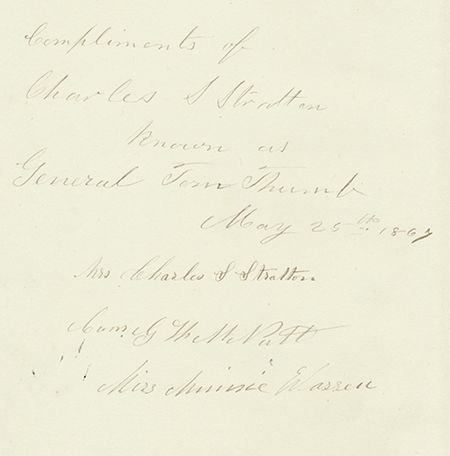 Compliments of
Charles S Stratton
known as
General Tom Thumb
May 25th 1867
Mrs Charles S Stratton
Com. G W M Nutt
Miss Minnie Warren